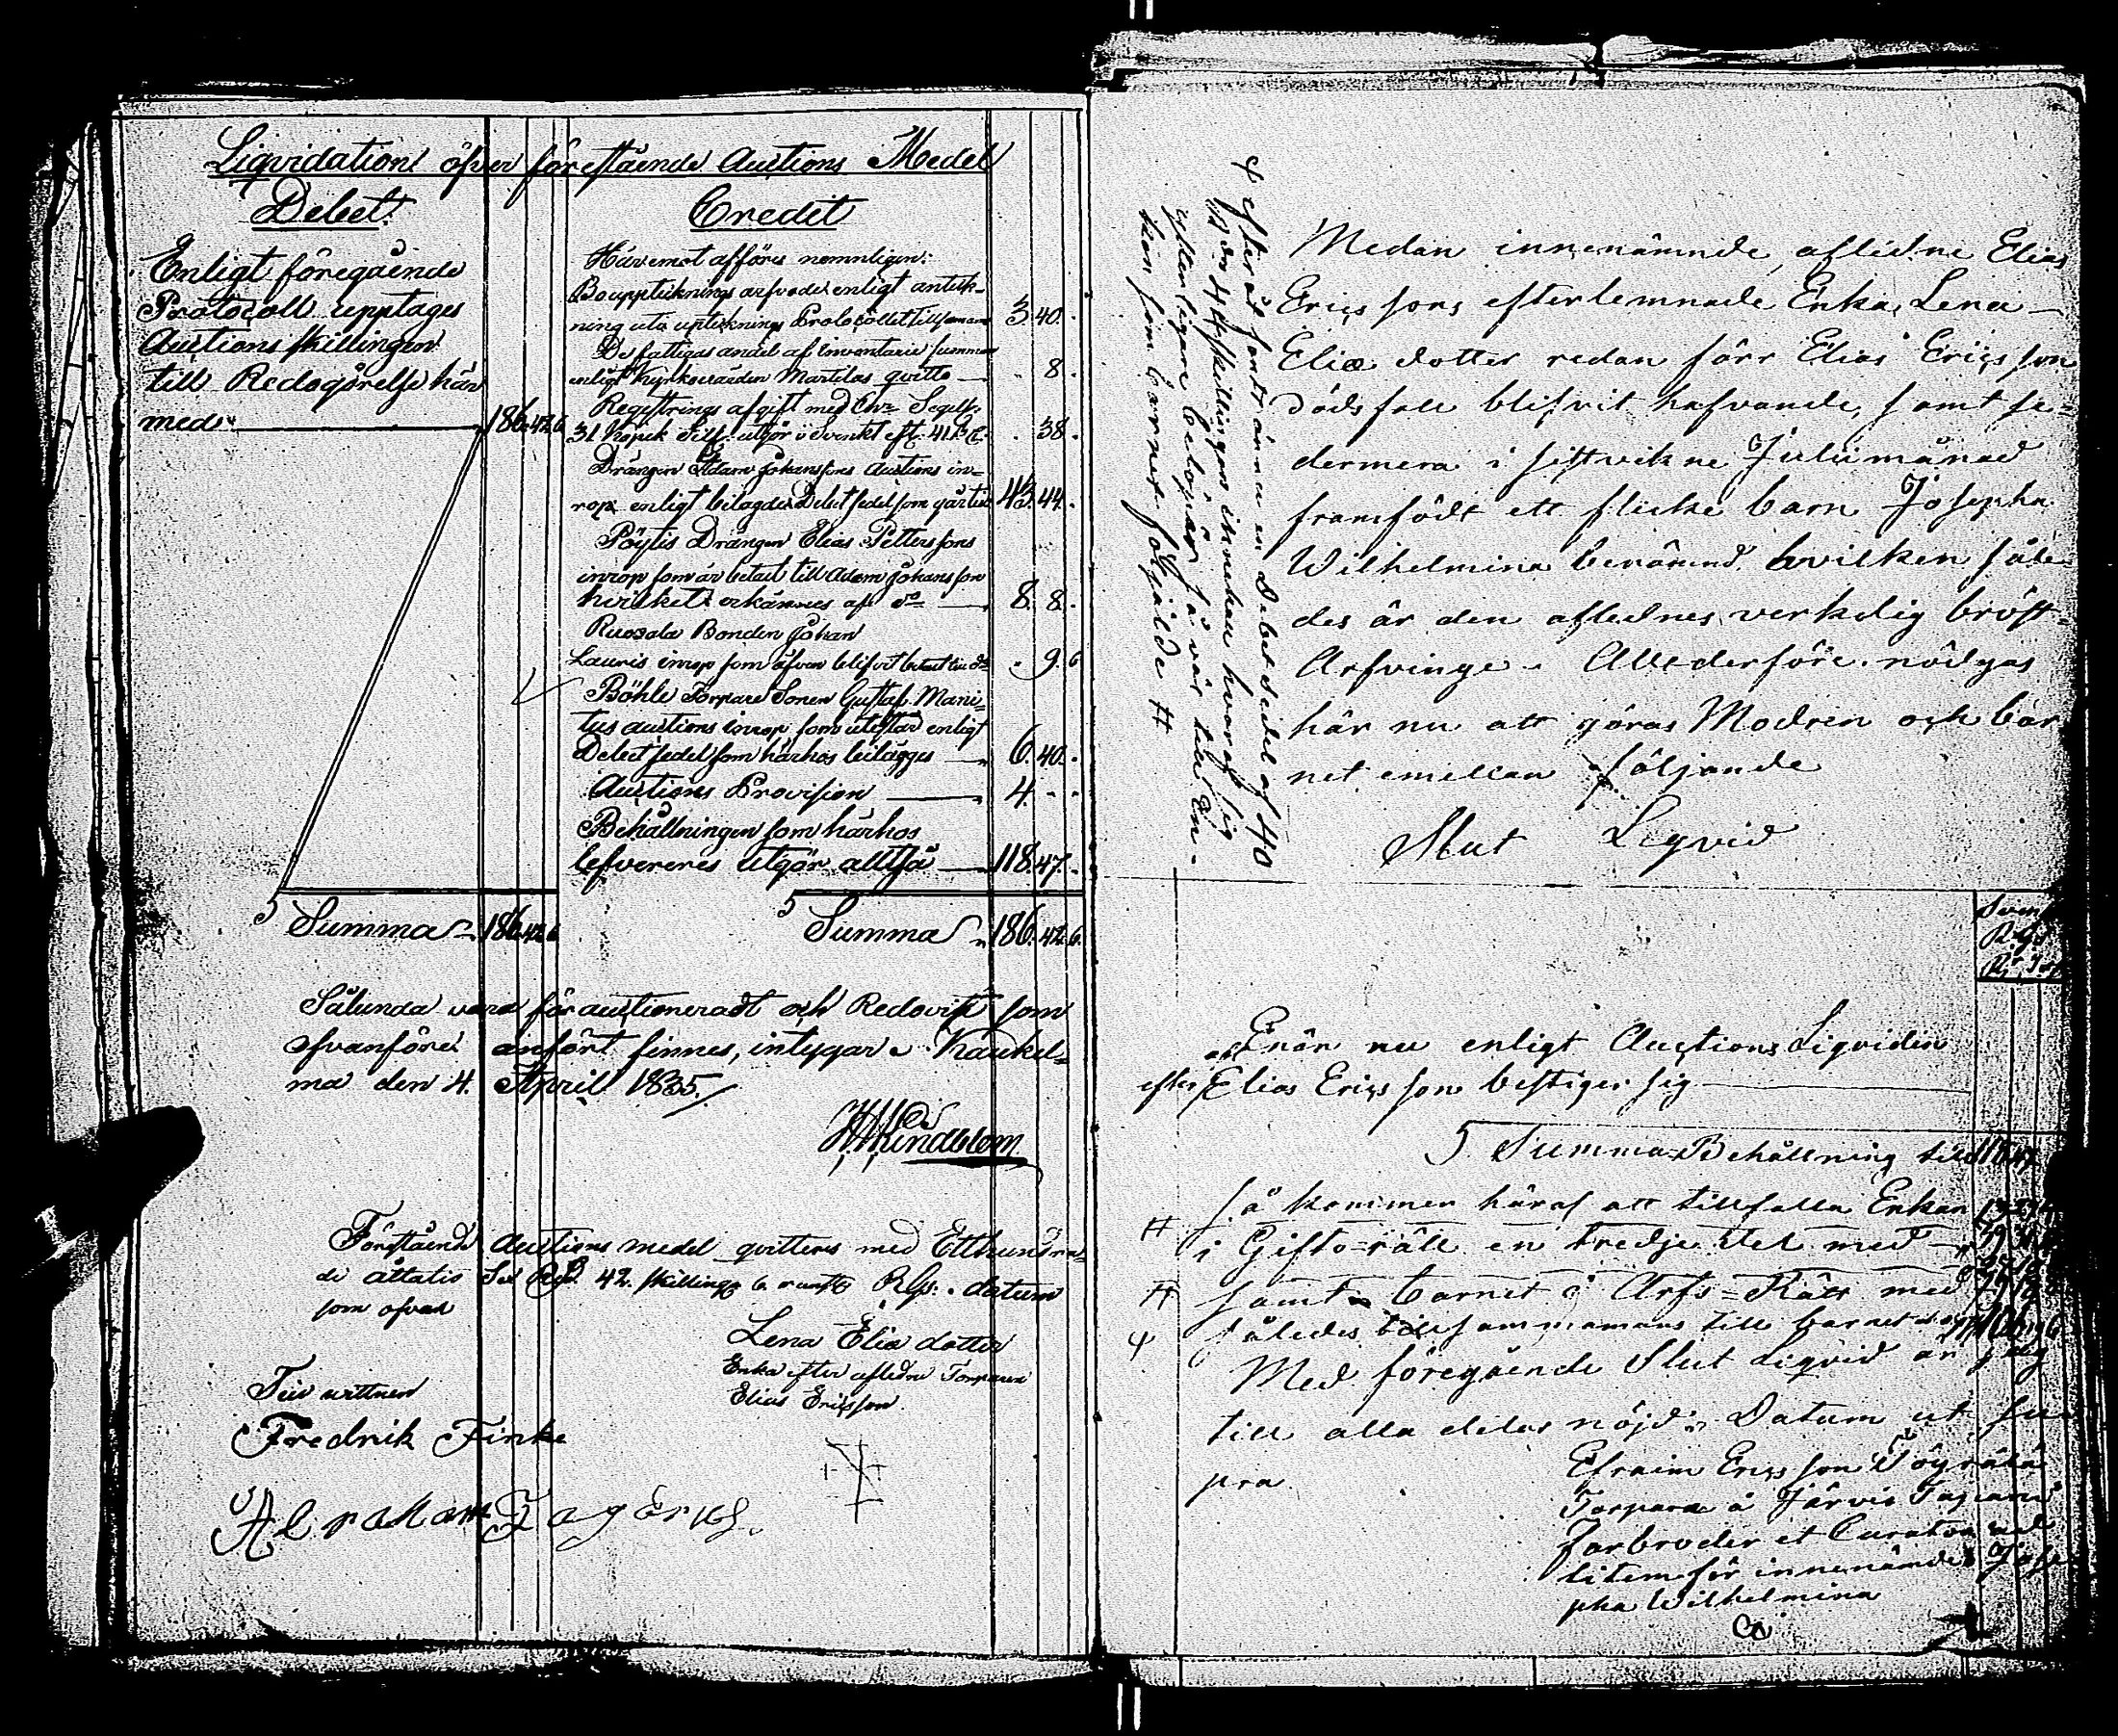 Liqvidation öfver förestående Auctions Medel
Debet.
Enligt föregående
Protocoll upptages
Auctions skillingen
till Redogörelse här
med 186. 42. 6
Summa 186. 42. 6
Credit
Häremot afföres nemnligen:
Bouppteknings arfvodet enligt antek-
ning uti uptecknings Protocollet tillsamans 3. 40. -
De fattigas andel af Inventarie summan
enligt Kyrkovärden Martilas qvitto - 8. -
Registrings afgift med
31 Kopek Silf. utgör i Svenkt - 38. -
Drängen Adam Johanssons Auctions in-
rop enligt bilagde Debetsedel som går till 43. 44. -
Pöytis Drängen Elias Petterssons
inrop som är betalt till Adam Johansson
hvilket erkännes af do 8. 8. -
Ruosala Bonden Johan
Lauris inrop som äfven blifvit betalt till do - 9. 6
Böhle Torpare Sonen Gustaf Mani-
tus auctions inrop som utestår enligt
Debetsedel som härhos bilägges 6. 40. -
Auctions Provision 4. - -
Behållningen som härhos
lefvereres utgör alltså 118. 47. -
Summa 186. 42. 6.
Sålunda vara förauctioneradt och Redovist som
ofvanföre anfört finnes, intygar. Kaukel-
ma den 4. April 1835.
Lindblom
Förstående Auctions medel qvitteres med Etthundra-
de åttatio Sex RD. 42. skilling 6 runst. Rgs. datum
som ofvan
Lena Eliæ dotter
Enka efter afledne Torparen
Elias Ericsson.
Till wittnen
Fredrik Finke
Abraham Fagerus.
Medan innenämnde afledne Elias
Ericssons efterlemnade Enka, Lena
Eliæ dotter redan förr Elias Ericsson
dödsfall blifvit hafvande, samt se-
dermera i sistvikne Julii månad
framfödt ett flicke barn Josepha
Wilhelmina benämnd hvilken såle-
des är den aflednes verkelig bröst-
Arfvinge. Allt derföre nödgas
här nu att göras Modren och bar
net emellan följande
Slut Liqvid
efteråt fants ännu en Debet sedel af 40
Rd 44 skillingars innehau hvaraf sig
ytterligare belöper så vär till En-
kan som barnet följagde #
Svensk
Rgs
Enär nu enligt Auctions Liqvidin
efter Elias Ericsson bestiger sig
Summa Behållning till 118. 47
så kommer häraf att tillfalla Enkan
# i Gifto-rätt en tredje del med
# samt barnet i Arfs-Rätt med
således tillsammamans till barnet
Med föregående Slut Liqvid är jag
till alla delar nöjd. Datum ut su
pra
Efraim Ericsson
Torpare å Järvis
Farbroder et Curator ad
litem för innenämde Jose
pha Wilhelmina